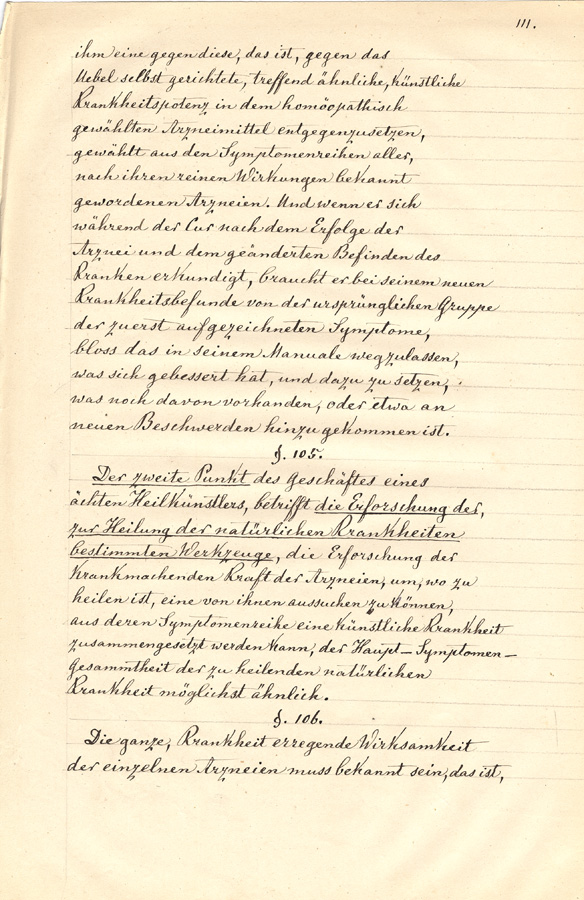 111.
ihm eine gegen diese, das ist, gegen das
Uebel selbst gerichtete, treffend ähnliche, künstliche
Krankheitspotenz in dem homöopathisch
gewählten Arzneimittel entgegenzusetzen,
gewählt aus den Symptomenreihen aller,
nach ihren reinen Wirkungen bekannt
gewordenen Arzneien. Und wenn er sich
während der Cur nach dem Erfolge der
Arznei und dem geänderten Befinden des
Kranken erkundigt, braucht er bei seinem neuen
Krankheitsbefunde von der ursprünglichen Gruppe
der zuerst aufgezeichneten Symptome,
bloss das in seinem Manuale wegzulassen,
was sich gebessert hat, und dazu zu setzen,
was noch davon vorhanden, oder etwa an
neuen Beschwerden hinzugekommen ist.
§. 105.
Der zweite Punkt des Geschäftes eines
ächten Heilkünstlers, betrifft die Erforschung der,
zur Heilung der natürlichen Krankheiten
bestimmten Werkzeuge, die Erforschung der
krankmachenden Kraft der Arzneien, um, wo zu
heilen ist, eine von ihnen aussuchen zu können,
aus deren Symptomenreihe eine künstliche Krankheit
zusammengesetzt werden kann, der Haupt-Symptomen-
Gesammtheit der zu heilenden natürlichen
Krankheit möglichst ähnlich.
§. 106.
Die ganze, Krankheit erregende Wirksamkeit
der einzelnen Arzneien muss bekannt sein, das ist,